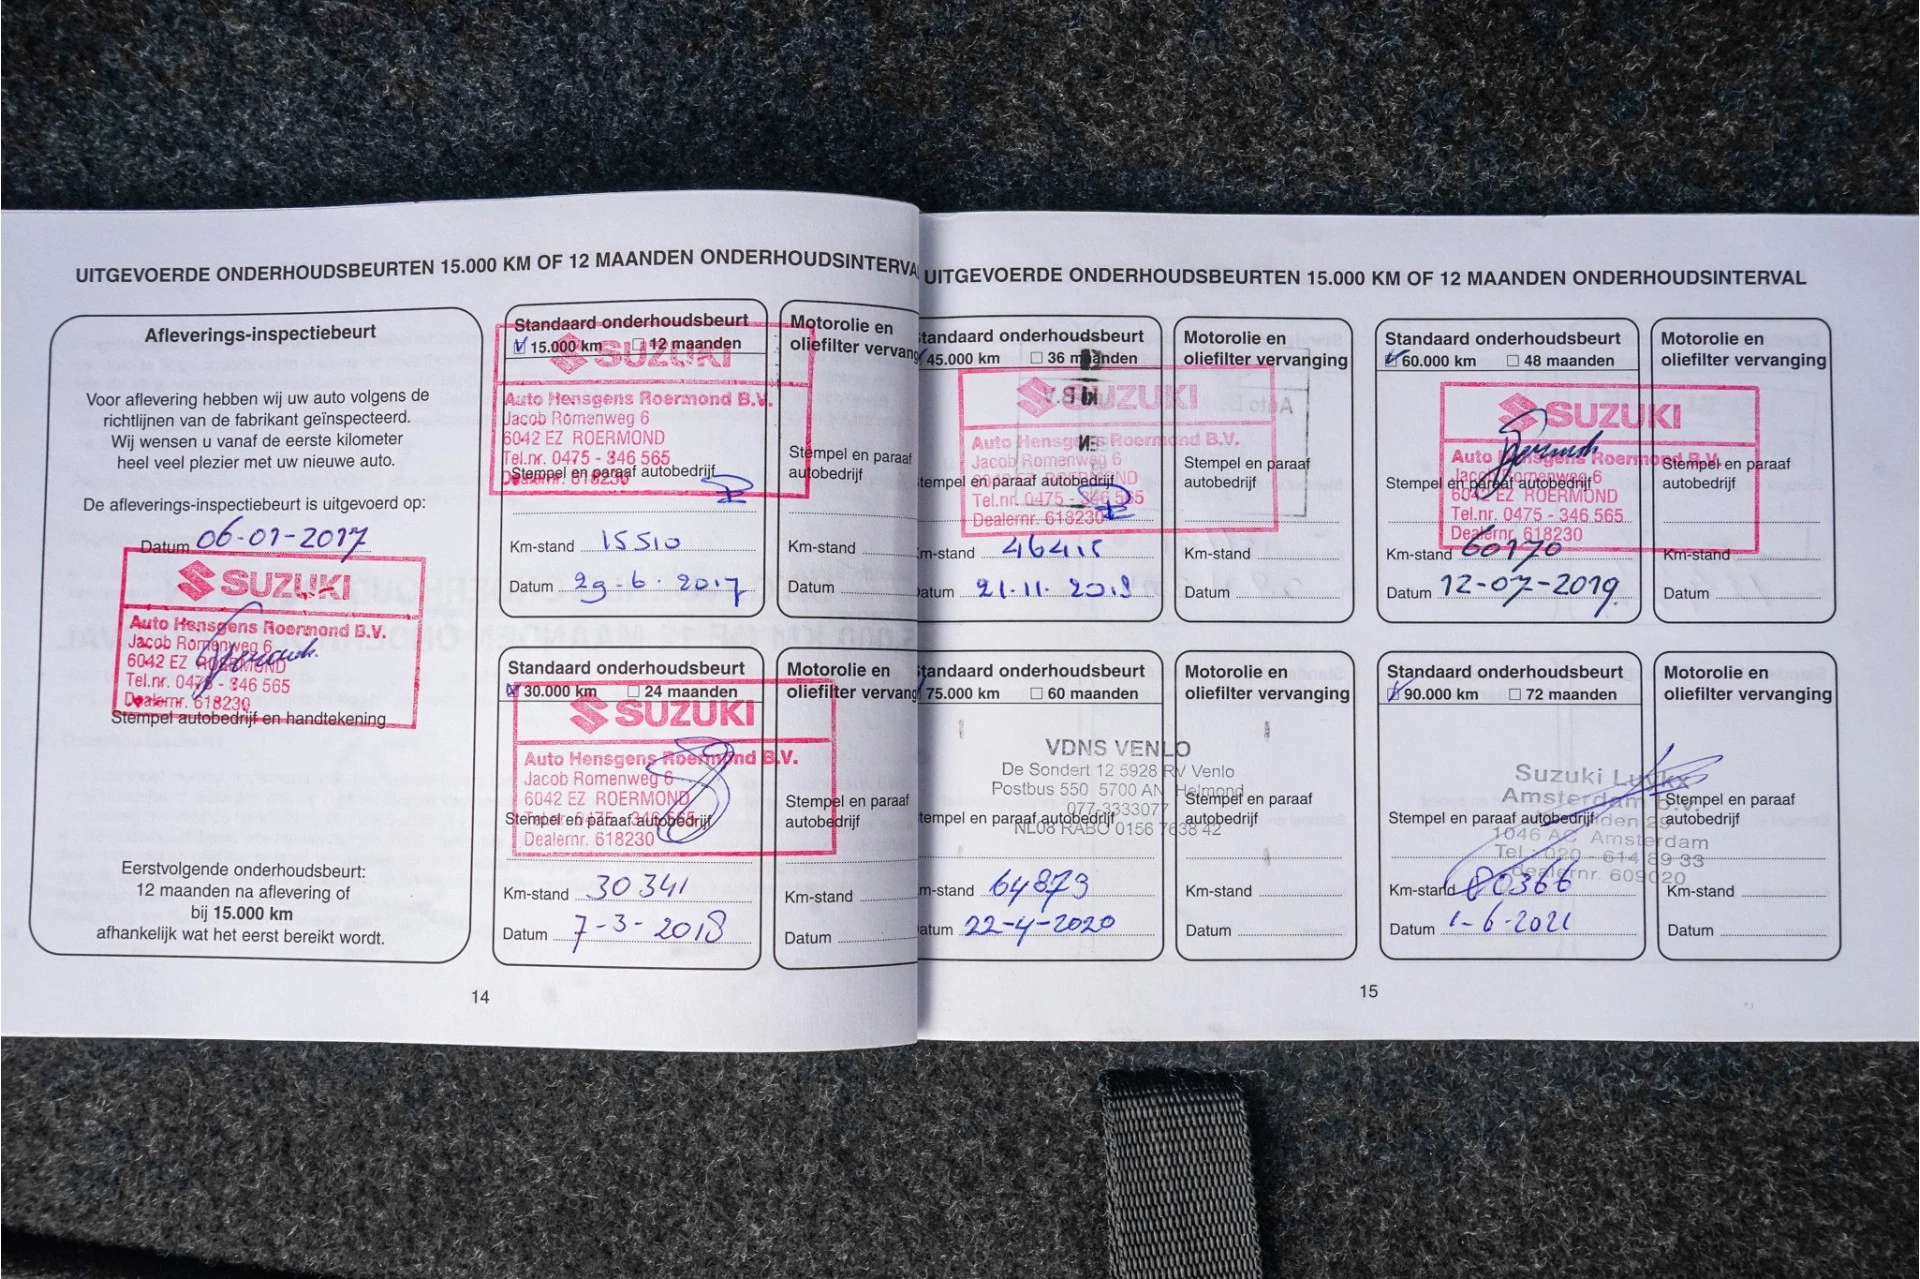 UITGEVOERDE ONDERHOUDSBEURTEN 15.000 KM OF 12 MAANDEN ONDERHOUDSINTERVA
Afleverings-inspectiebeurt
Voor aflevering hebben wij uw auto volgens de
richtlijnen van de fabrikant geïnspecteerd.
Wij wensen u vanaf de eerste kilometer
heel veel plezier met uw nieuwe auto.
De afleverings-inspectiebeurt is uitgevoerd op:
Datum 06-01-2017
SUZUKI
Auto Hensgens Roermond B.V.
Jacob Romenweg 6
6042 EZ ROERMOND
Tel.nr. 0475 - 346 565
Dealernr. 618230
Stempel autobedrijf en handtekening
Eerstvolgende onderhoudsbeurt:
12 maanden na aflevering of
bij 15.000 km
afhankelijk wat het eerst bereikt wordt.
Standaard onderhoudsbeurt
15.000 km 12 maanden
SUZUKI
Auto Hensgens Roermond B.V.
Jacob Romenweg 6
6042 EZ ROERMOND
Tel.nr. 0475 - 346 565
Stempel en paraaf autobedrijf
Dealernr. 618230
Km-stand 15510
Datum 29-6-2017
Motorolie en
oliefilter vervang
Stempel en paraaf
autobedrijf
Km-stand
Datum
Standaard onderhoudsbeurt
30.000 km 24 maanden
SUZUKI
Auto Hensgens Roermond B.V.
Jacob Romenweg 6
6042 EZ ROERMOND
Stempel en paraaf autobedrijf
Tel.nr. 0475 - 346 565
Dealernr. 618230
Km-stand 30341
Datum 7-3-2018
Motorolie en
oliefilter vervang
Stempel en paraaf
autobedrijf
Km-stand
Datum
14
UITGEVOERDE ONDERHOUDSBEURTEN 15.000 KM OF 12 MAANDEN ONDERHOUDSINTERVAL
tandaard onderhoudsbeurt
45.000 km 36 maanden
SUZUKI
Auto Hensgens Roermond B.V.
Jacob Romenweg 6
6042 EZ ROERMOND
tempel en paraaf autobedrijf
Tel.nr. 0475 - 346 565
Dealernr. 618230
m-stand 46415
atum 21.11.2018
Motorolie en
oliefilter vervanging
Stempel en paraaf
autobedrijf
Km-stand
Datum
Standaard onderhoudsbeurt
60.000 km 48 maanden
SUZUKI
Auto Hensgens Roermond B.V.
Jacob Romenweg 6
Stempel en paraaf autobedrijf
6042 EZ ROERMOND
Tel.nr. 0475 - 346 565
Dealernr. 618230
Km-stand 60170
Datum 12-07-2019
Motorolie en
oliefilter vervanging
Stempel en paraaf
autobedrijf
Km-stand
Datum
tandaard onderhoudsbeurt
75.000 km 60 maanden
VDNS VENLO
De Sondert 12 5928 RV Venlo
Postbus 550 5700 AN Helmond
077-3333077
tempel en paraaf autobedrijf
NL08 RABO 0156 7638 42
m-stand 64873
atum 22-4-2020
Motorolie en
oliefilter vervanging
Stempel en paraaf
autobedrijf
Km-stand
Datum
Standaard onderhoudsbeurt
90.000 km 72 maanden
Suzuki Luykx
Amsterdam B.V.
Stempel en paraaf autobedrijf
1046 AC Amsterdam
Tel.: 020 - 614 89 33
dealernr. 609020
Km-stand 80366
Datum 1-6-2021
Motorolie en
oliefilter vervanging
Stempel en paraaf
autobedrijf
Km-stand
Datum
15